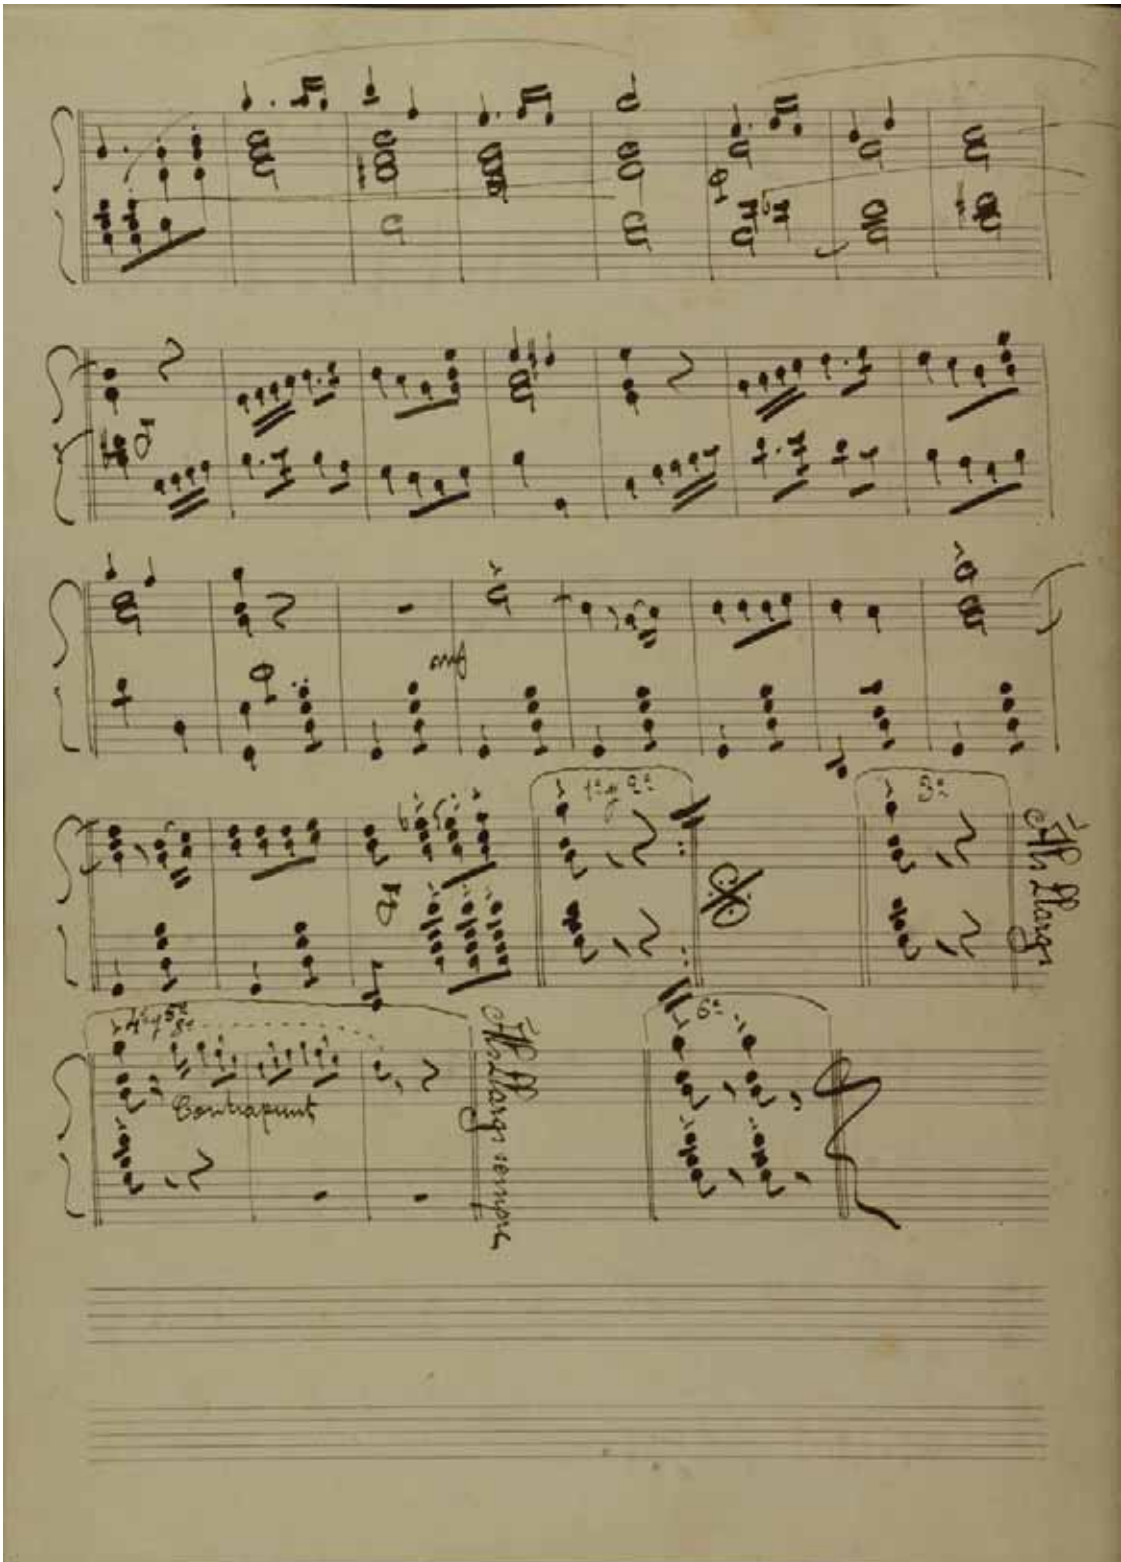 mf
1ª y 2ª
3ª
Als Llargs
4ª y 5ª
8ª
Contrapunt
Als Llargs sempre
6ª